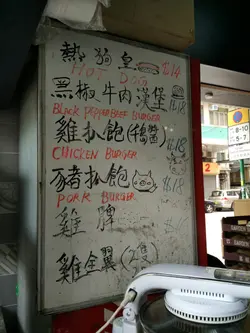 熱狗皇 $14
HOT DOG
黑椒牛肉漢堡 $18
BLACK PEPPER BEEF BURGER
雞扒飽(橋醬) $18
CHICKEN BURGER
豬扒飽 $18
PORK BURGER
雞脾
雞全翼(2隻)